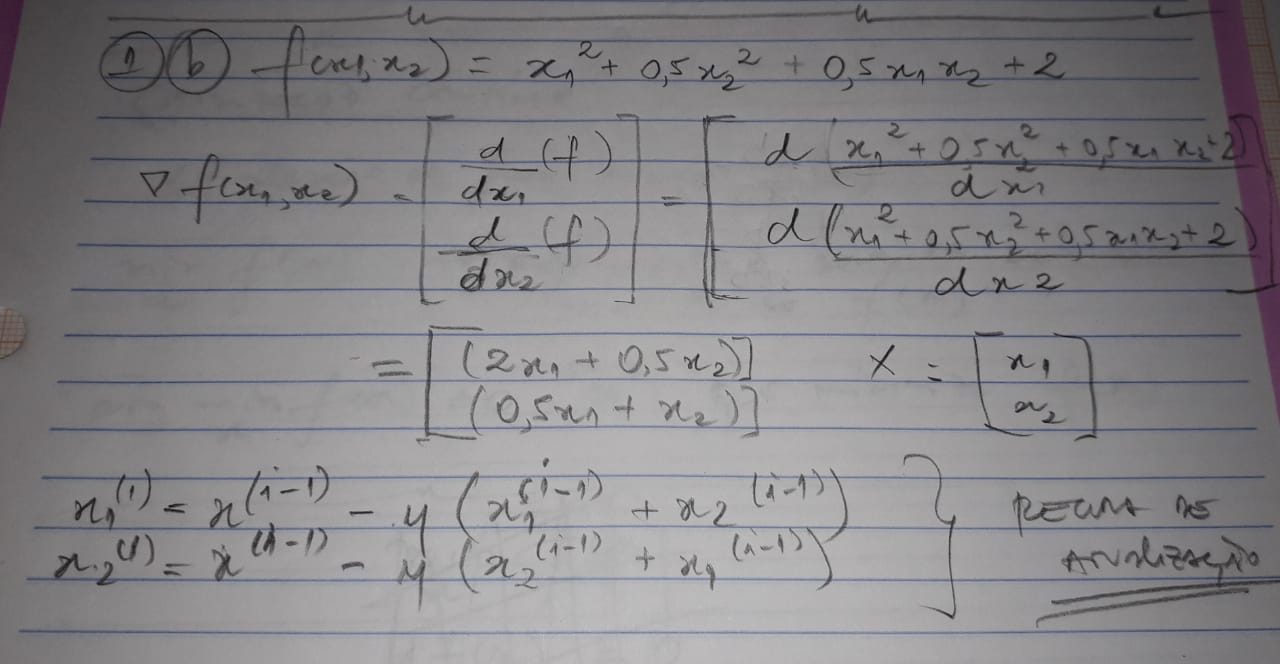 1 b f(x1,x2) = x₁² + 0,5x₂² + 0,5x₁x₂ + 2
∇f(x₁,x₂) = [ d/dx₁ (f) ; d/dx₂ (f) ] = [ d(x₁² + 0,5x₂² + 0,5x₁x₂+2)/dx₁ ; d(x₁² + 0,5x₂² + 0,5x₁x₂ + 2)/dx2 ]
= [ (2x₁ + 0,5x₂)] X = [ x₁
(0,5x₁ + x₂)] x₂ ]
x₁⁽ⁱ⁾ = x⁽ⁱ⁻¹⁾ - η (x₁⁽ⁱ⁻¹⁾ + x₂⁽ⁱ⁻¹⁾) } REGRA DE
x₂⁽ⁱ⁾ = x⁽ⁱ⁻¹⁾ - η (x₂⁽ⁱ⁻¹⁾ + x₁⁽ⁱ⁻¹⁾) ATUALIZAÇÃO